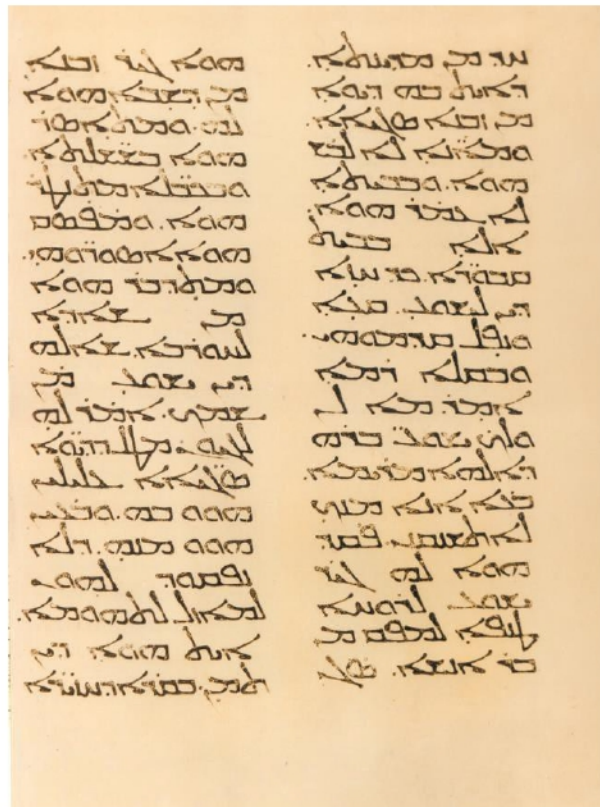 ܚܕ ܡܢ ܡܕܝܢܬܐ.
ܕܐܝܬ ܒܗ ܕܝܘܐ
ܡܢ ܙܒܢܐ ܣܓܝܐܐ
ܘܡܐܢ̈ܐ ܠܐ ܠܒܫ
ܗܘܐ. ܘܒܒܝܬܐ
ܠܐ ܥܡܪ ܗܘܐ.
ܐܠܐ ܒܒܝܬ
ܩܒܘܪ̈ܐ. ܟܕ ܚܙܐ
ܕܝܢ ܠܝܫܘܥ. ܩܥܐ
ܘܢܦܠ ܩܕܡܘܗܝ.
ܘܒܩܠܐ ܪܡܐ
ܐܡܪ. ܡܐ ܠܝ
ܘܠܟ ܝܫܘܥ ܒܪܗ
ܕܐܠܗܐ ܡܪܝܡܐ.
ܒܥܐ ܐܢܐ ܡܢܟ
ܠܐ ܬܫܢܩܢܝ. ܦܩܕ
ܗܘܐ ܠܗ ܓܝܪ
ܝܫܘܥ ܠܪܘܚܐ
ܛܢܦܐ ܠܡܦܩ ܡܢ
ܒܪ ܐܢܫܐ. ܣܓܝ
ܗܘܐ ܓܝܪ ܙܒܢܐ
ܡܢ ܕܫܒܐ ܗܘܐ
ܠܗ. ܘܡܬܐܣܪ
ܗܘܐ ܒܫܫ̈ܠܬܐ
ܘܒܟܒ̈ܠܐ ܡܬܢܛܪ
ܗܘܐ. ܘܡܦܣܩ
ܗܘܐ ܐܣܘܪ̈ܘܗܝ.
ܘܡܬܕܒܪ ܗܘܐ
ܡܢ ܫܐܕܐ
ܠܚܘܪܒܐ. ܫܐܠܗ
ܕܝܢ ܝܫܘܥ ܡܢ
ܫܡܟ. ܐܡܪ ܠܗ
ܠܓܝܘܢ. ܡܛܠ ܕܕܝ̈ܘܐ
ܣܓܝ̈ܐܐ ܥܠܝܠܝܢ
ܗܘܘ ܒܗ. ܘܒܥܝܢ
ܗܘܘ ܡܢܗ. ܕܠܐ
ܢܦܩܘܕ ܠܗܘܢ
ܠܡܐܙܠ ܠܬܗܘܡܐ.
ܐܝܬ ܗܘܐ ܕܝܢ
ܬܡܢ. ܒܩܪܐ ܕܚܙܝܪ̈ܐ